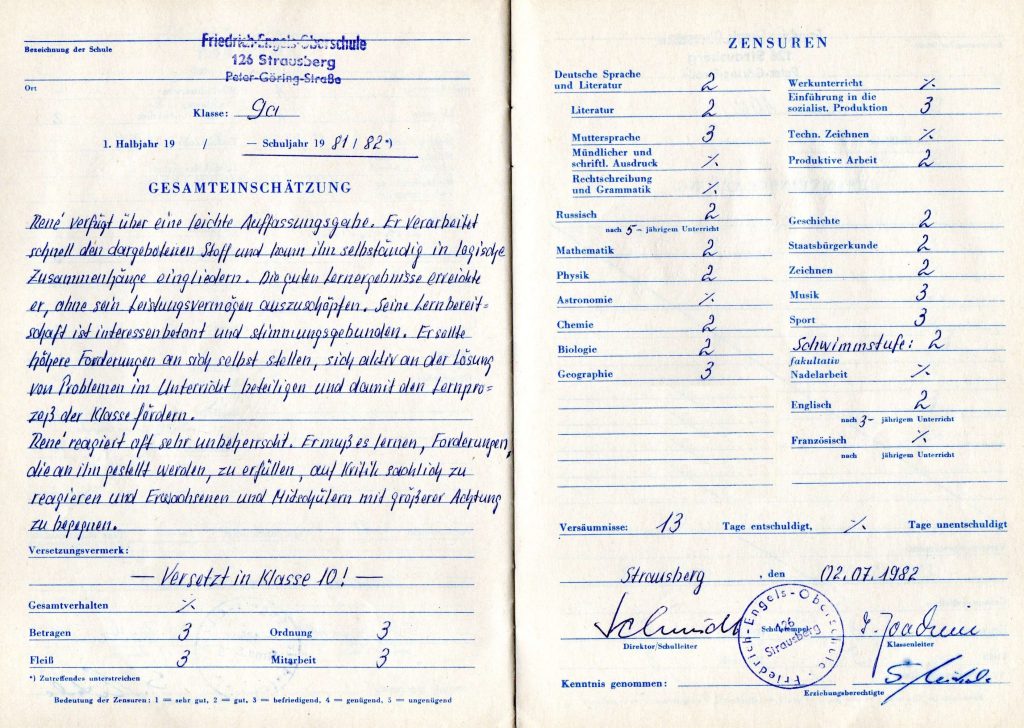 Friedrich-Engels-Oberschule
Bezeichnung der Schule
126 Strausberg
Peter-Göring-Straße
Ort
Klasse: 9a
1. Halbjahr 19 / — Schuljahr 19 81 / 82 *)
GESAMTEINSCHÄTZUNG
René verfügt über eine leichte Auffassungsgabe. Er verarbeitet
schnell den dargebotenen Stoff und kann ihn selbständig in logische
Zusammenhänge eingliedern. Die guten Lernergebnisse erreichte
er, ohne sein Leistungsvermögen auszuschöpfen. Seine Lernbereit=
schaft ist interessenbetont und stimmungsgebunden. Er sollte
höhere Forderungen an sich selbst stellen, sich aktiv an der Lösung
von Problemen im Unterricht beteiligen und damit den Lernpro=
zeß der Klasse fördern.
René reagiert oft sehr unbeherrscht. Er muß es lernen, Forderungen,
die an ihn gestellt werden, zu erfüllen, auf Kritik sachlich zu
reagieren und Erwachsenen und Mitschülern mit größerer Achtung
zu begegnen.
Versetzungsvermerk:
— Versetzt in Klasse 10! —
Gesamtverhalten ⁒
Betragen 3 Ordnung 3
Fleiß 3 Mitarbeit 3
*) Zutreffendes unterstreichen
Bedeutung der Zensuren: 1 = sehr gut, 2 = gut, 3 = befriedigend, 4 = genügend, 5 = ungenügend
ZENSUREN
Deutsche Sprache
und Literatur 2
Literatur 2
Muttersprache 3
Mündlicher und
schriftl. Ausdruck ⁒
Rechtschreibung
und Grammatik ⁒
Russisch 2
nach 5- jährigem Unterricht
Mathematik 2
Physik 2
Astronomie ⁒
Chemie 2
Biologie 2
Geographie 3
Werkunterricht ⁒
Einführung in die
sozialist. Produktion 3
Techn. Zeichnen ⁒
Produktive Arbeit 2
Geschichte 2
Staatsbürgerkunde 2
Zeichnen 2
Musik 3
Sport 3
Schwimmstufe: 2
fakultativ
Nadelarbeit ⁒
Englisch 2
nach 3- jährigem Unterricht
Französisch ⁒
nach jährigem Unterricht
Versäumnisse: 13 Tage entschuldigt, ⁒ Tage unentschuldigt
Strausberg , den 02.07.1982
Schmidt
Direktor/Schulleiter
Schulstempel
Friedrich-Engels-Oberschule
126
Strausberg
Klassenleiter
Kenntnis genommen:
Erziehungsberechtigte